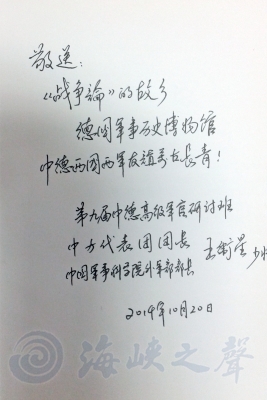 敬送：
《战争論》的故乡
德国军事历史博物馆
中德两国两军友谊万古長青！
第九届中德高级军官研讨班
中方代表团团长
中国军事科学院外军部部长 王衛星 少将
2014年10月20日
海峡之聲